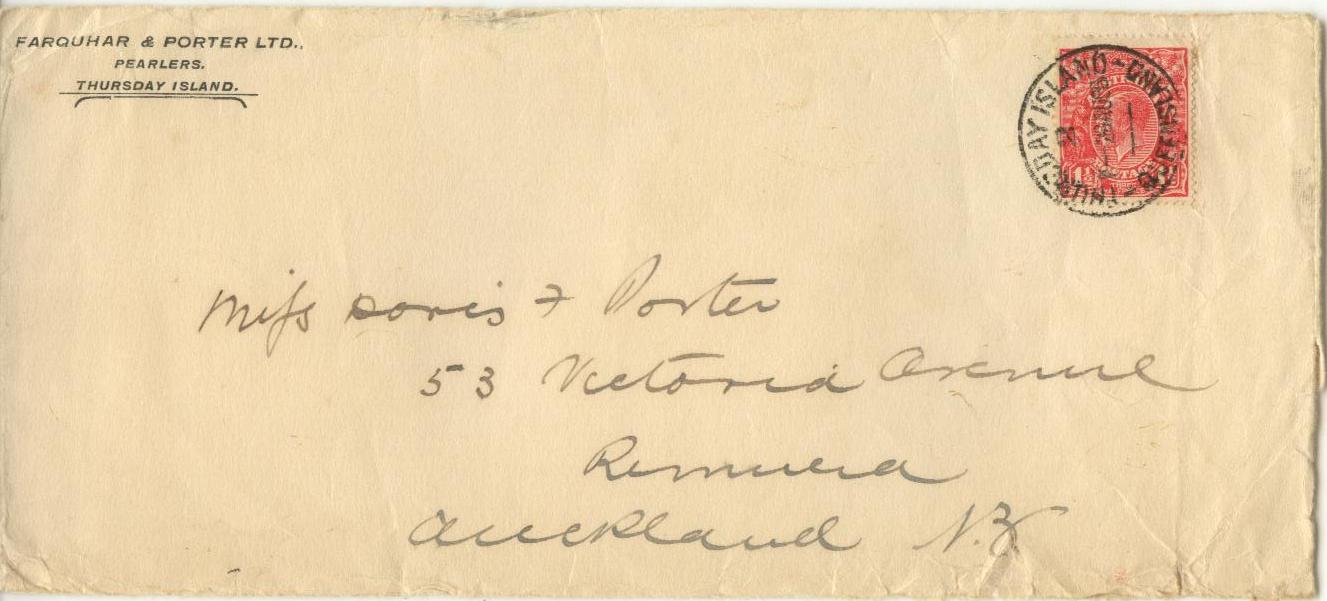 FARQUHAR & PORTER LTD.,
PEARLERS.
THURSDAY ISLAND.
THURSDAY ISLAND - QUEENSLAND
Miss Doris F Porter
53 Victoria Avenue
Remuera
Auckland N.Z